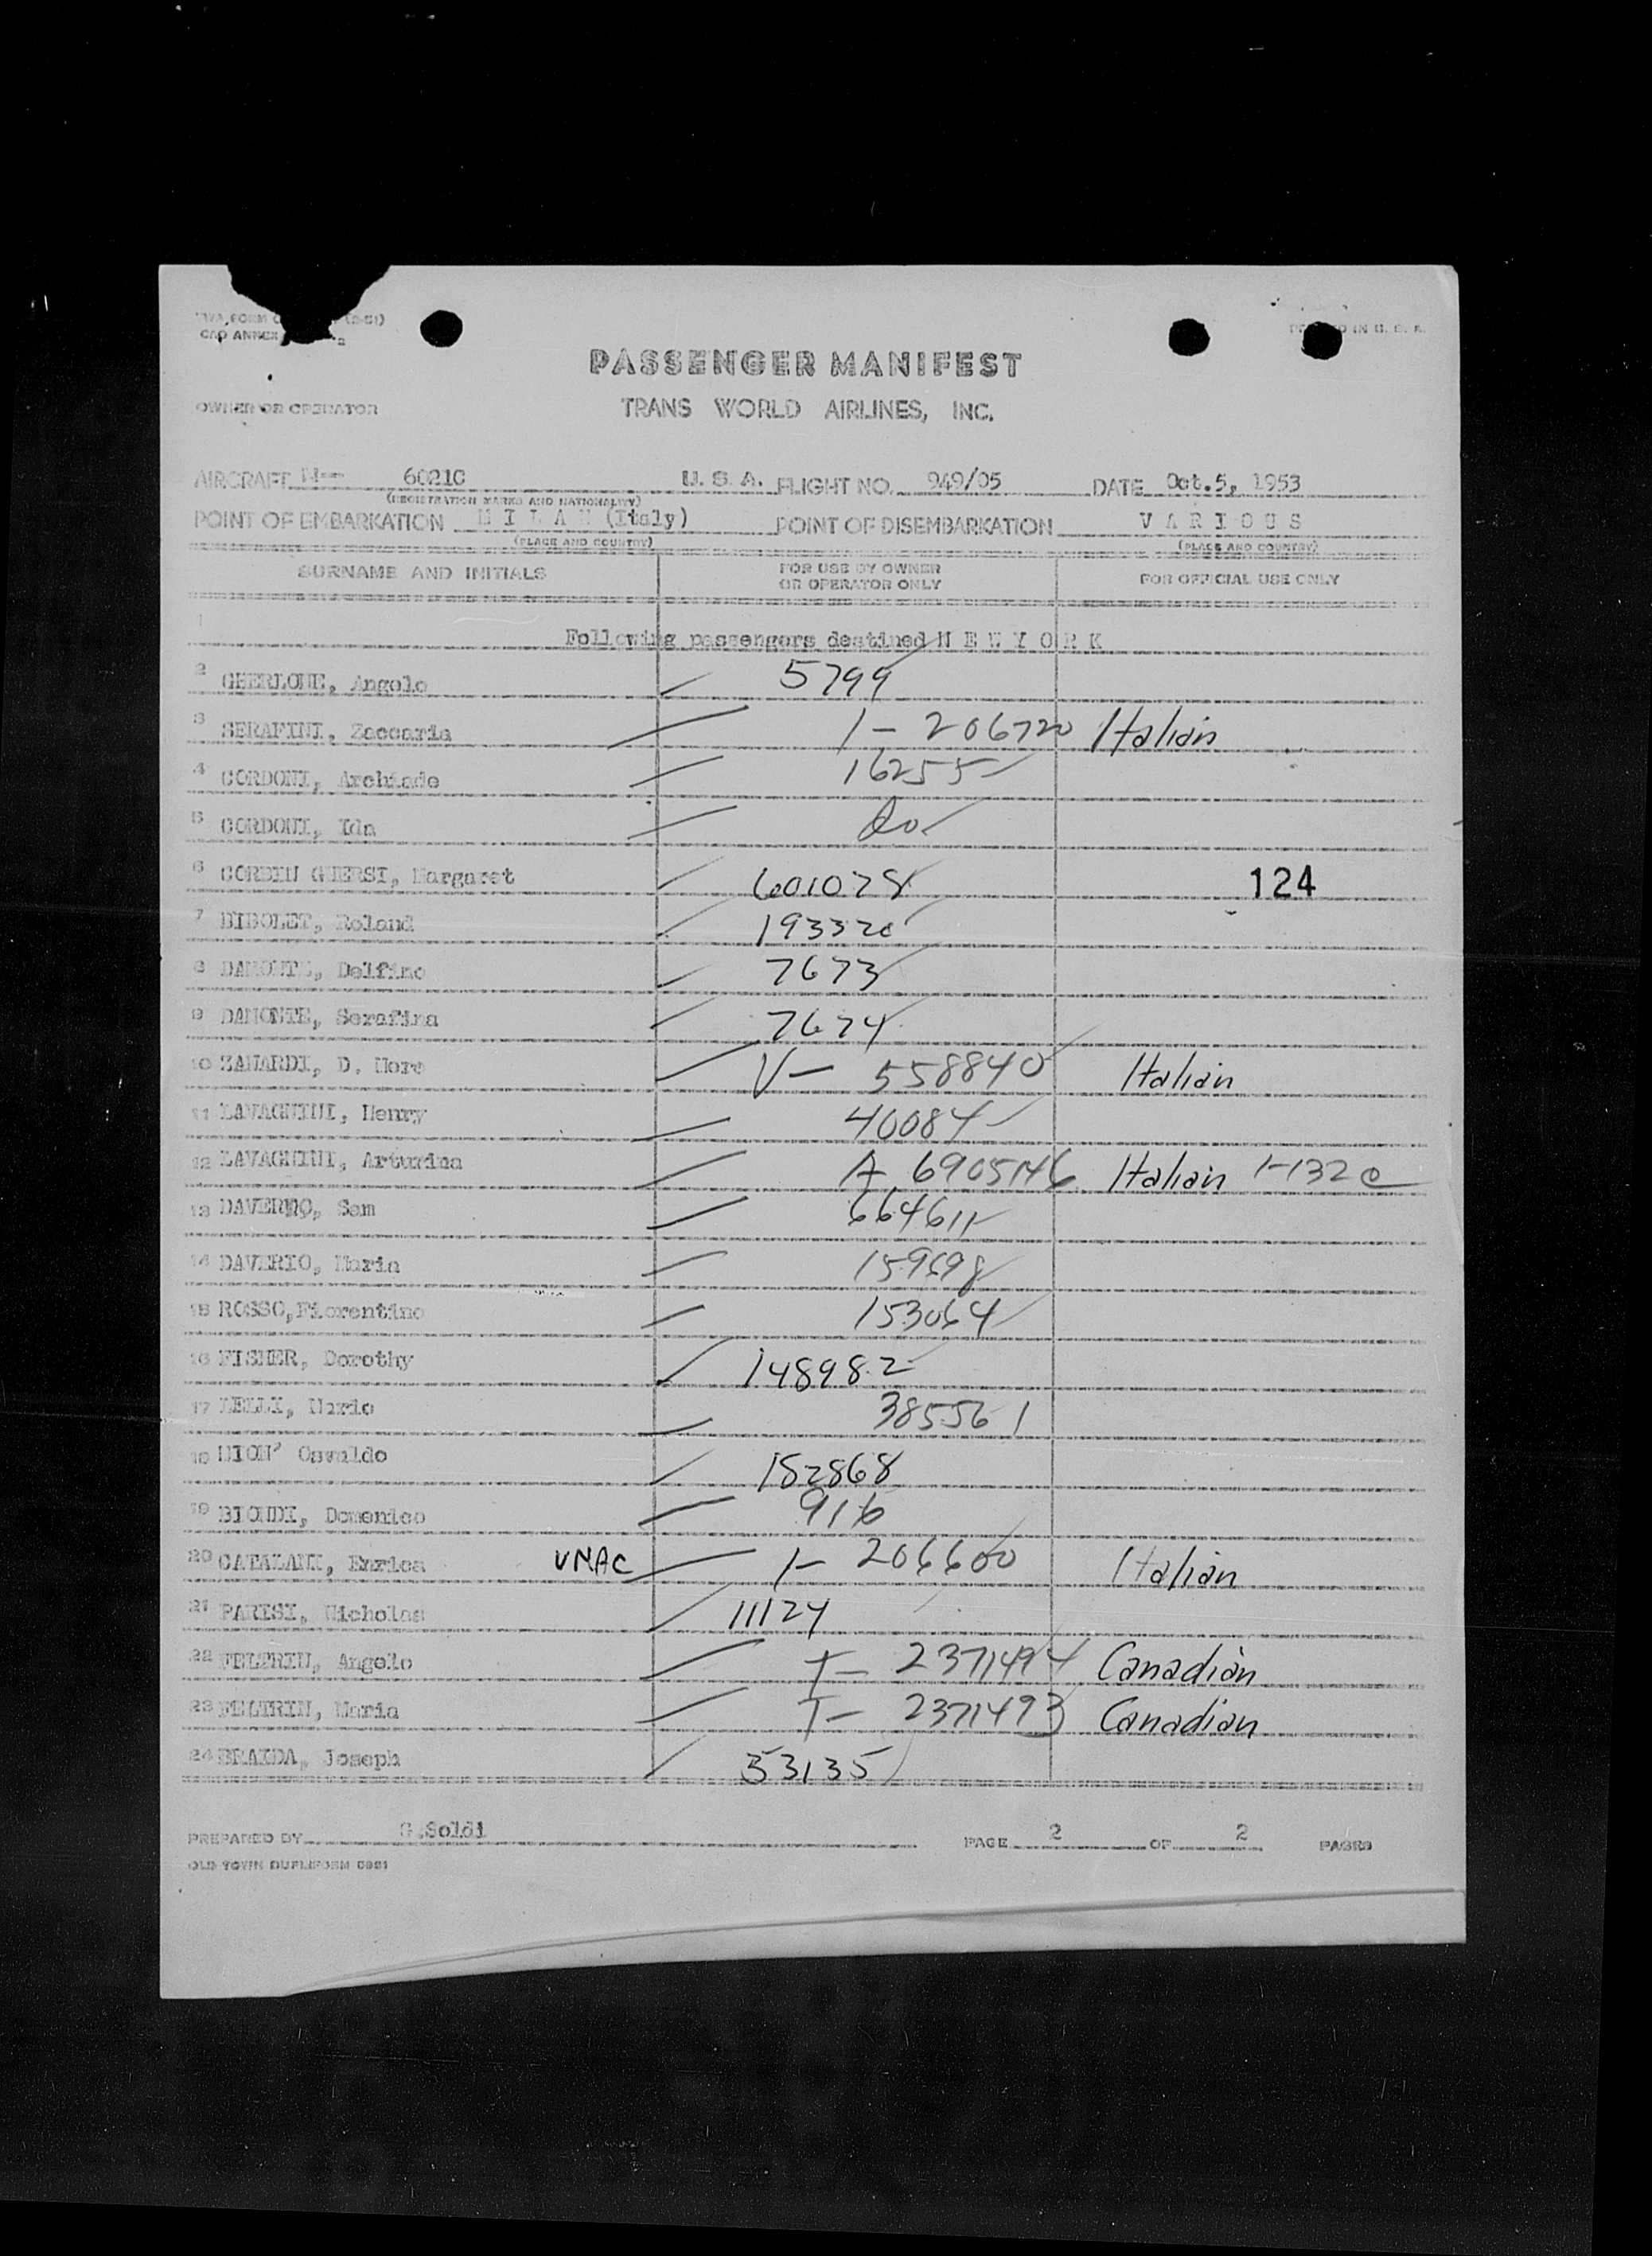 PASSENGER MANIFEST
OWNER OR OPERATOR TRANS WORLD AIRLINES, INC.
AIRCRAFT N 6021C U. S. A. FLIGHT NO. 949/05 DATE Oct. 5, 1953
(REGISTRATION MARKS AND NATIONALITY)
POINT OF EMBARKATION M I L A N (Italy) POINT OF DISEMBARKATION V A R I O U S
(PLACE AND COUNTRY) (PLACE AND COUNTRY)
SURNAME AND INITIALS FOR USE BY OWNER OR OPERATOR ONLY FOR OFFICIAL USE ONLY
1 Following passengers destined N E W Y O R K
2 GHERLONE, Angelo 5799
3 SERAFINI, Zaccaria I- 206720 Italian
4 CORDONI, 16255
5 CORDONI, Ida do
6 CORDIN GHERSI, Margaret 601078 124
7 BIBOLET, Roland 193320
8 DAMONTE, Delfino 7673
9 DAMONTE, Serafina 7674
10 ZANARDI, D. V- 558840 Italian
11 LAVAGNINI, Henry 40084
12 LAVAGNINI, Arturina A 6905146 Italian I-132
13 DAVERIO, Sam 664611
14 DAVERIO, Maria 159698
15 ROSSO,Fiorentino 153064
16 FISHER, Dorothy 148982
17 LELLI, Mario 385561
18 Osvaldo 152868
19 BIONDI, Domenico 916
20 CATALANI, Enrica VMAC I- 206600 Italian
21 PARISI, Nicholas 11124
22 FELTRIN, Angelo T- 2371494 Canadian
23 FELTRIN, Maria T- 2371493 Canadian
24 BRAIDA, Joseph 53135
PREPARED BY G.Soldi PAGE 2 OF 2 PAGES
OLD TOWN DUPLIFORM